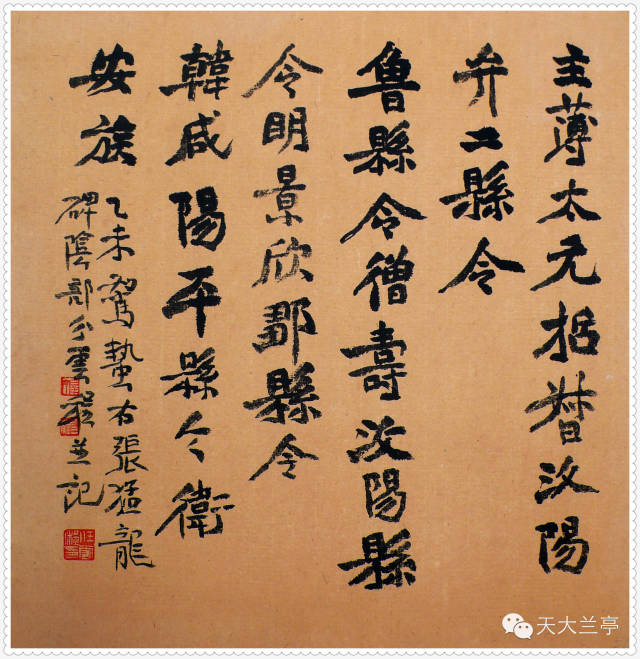 主薄太元括督汝陽
弁二縣令
魯縣令僧壽汝陽縣
令明景欣郡縣令
韓咸陽平縣令衛
安族
乙未驚蟄右張猛龍
碑陰部分雲程並記
天大兰亭